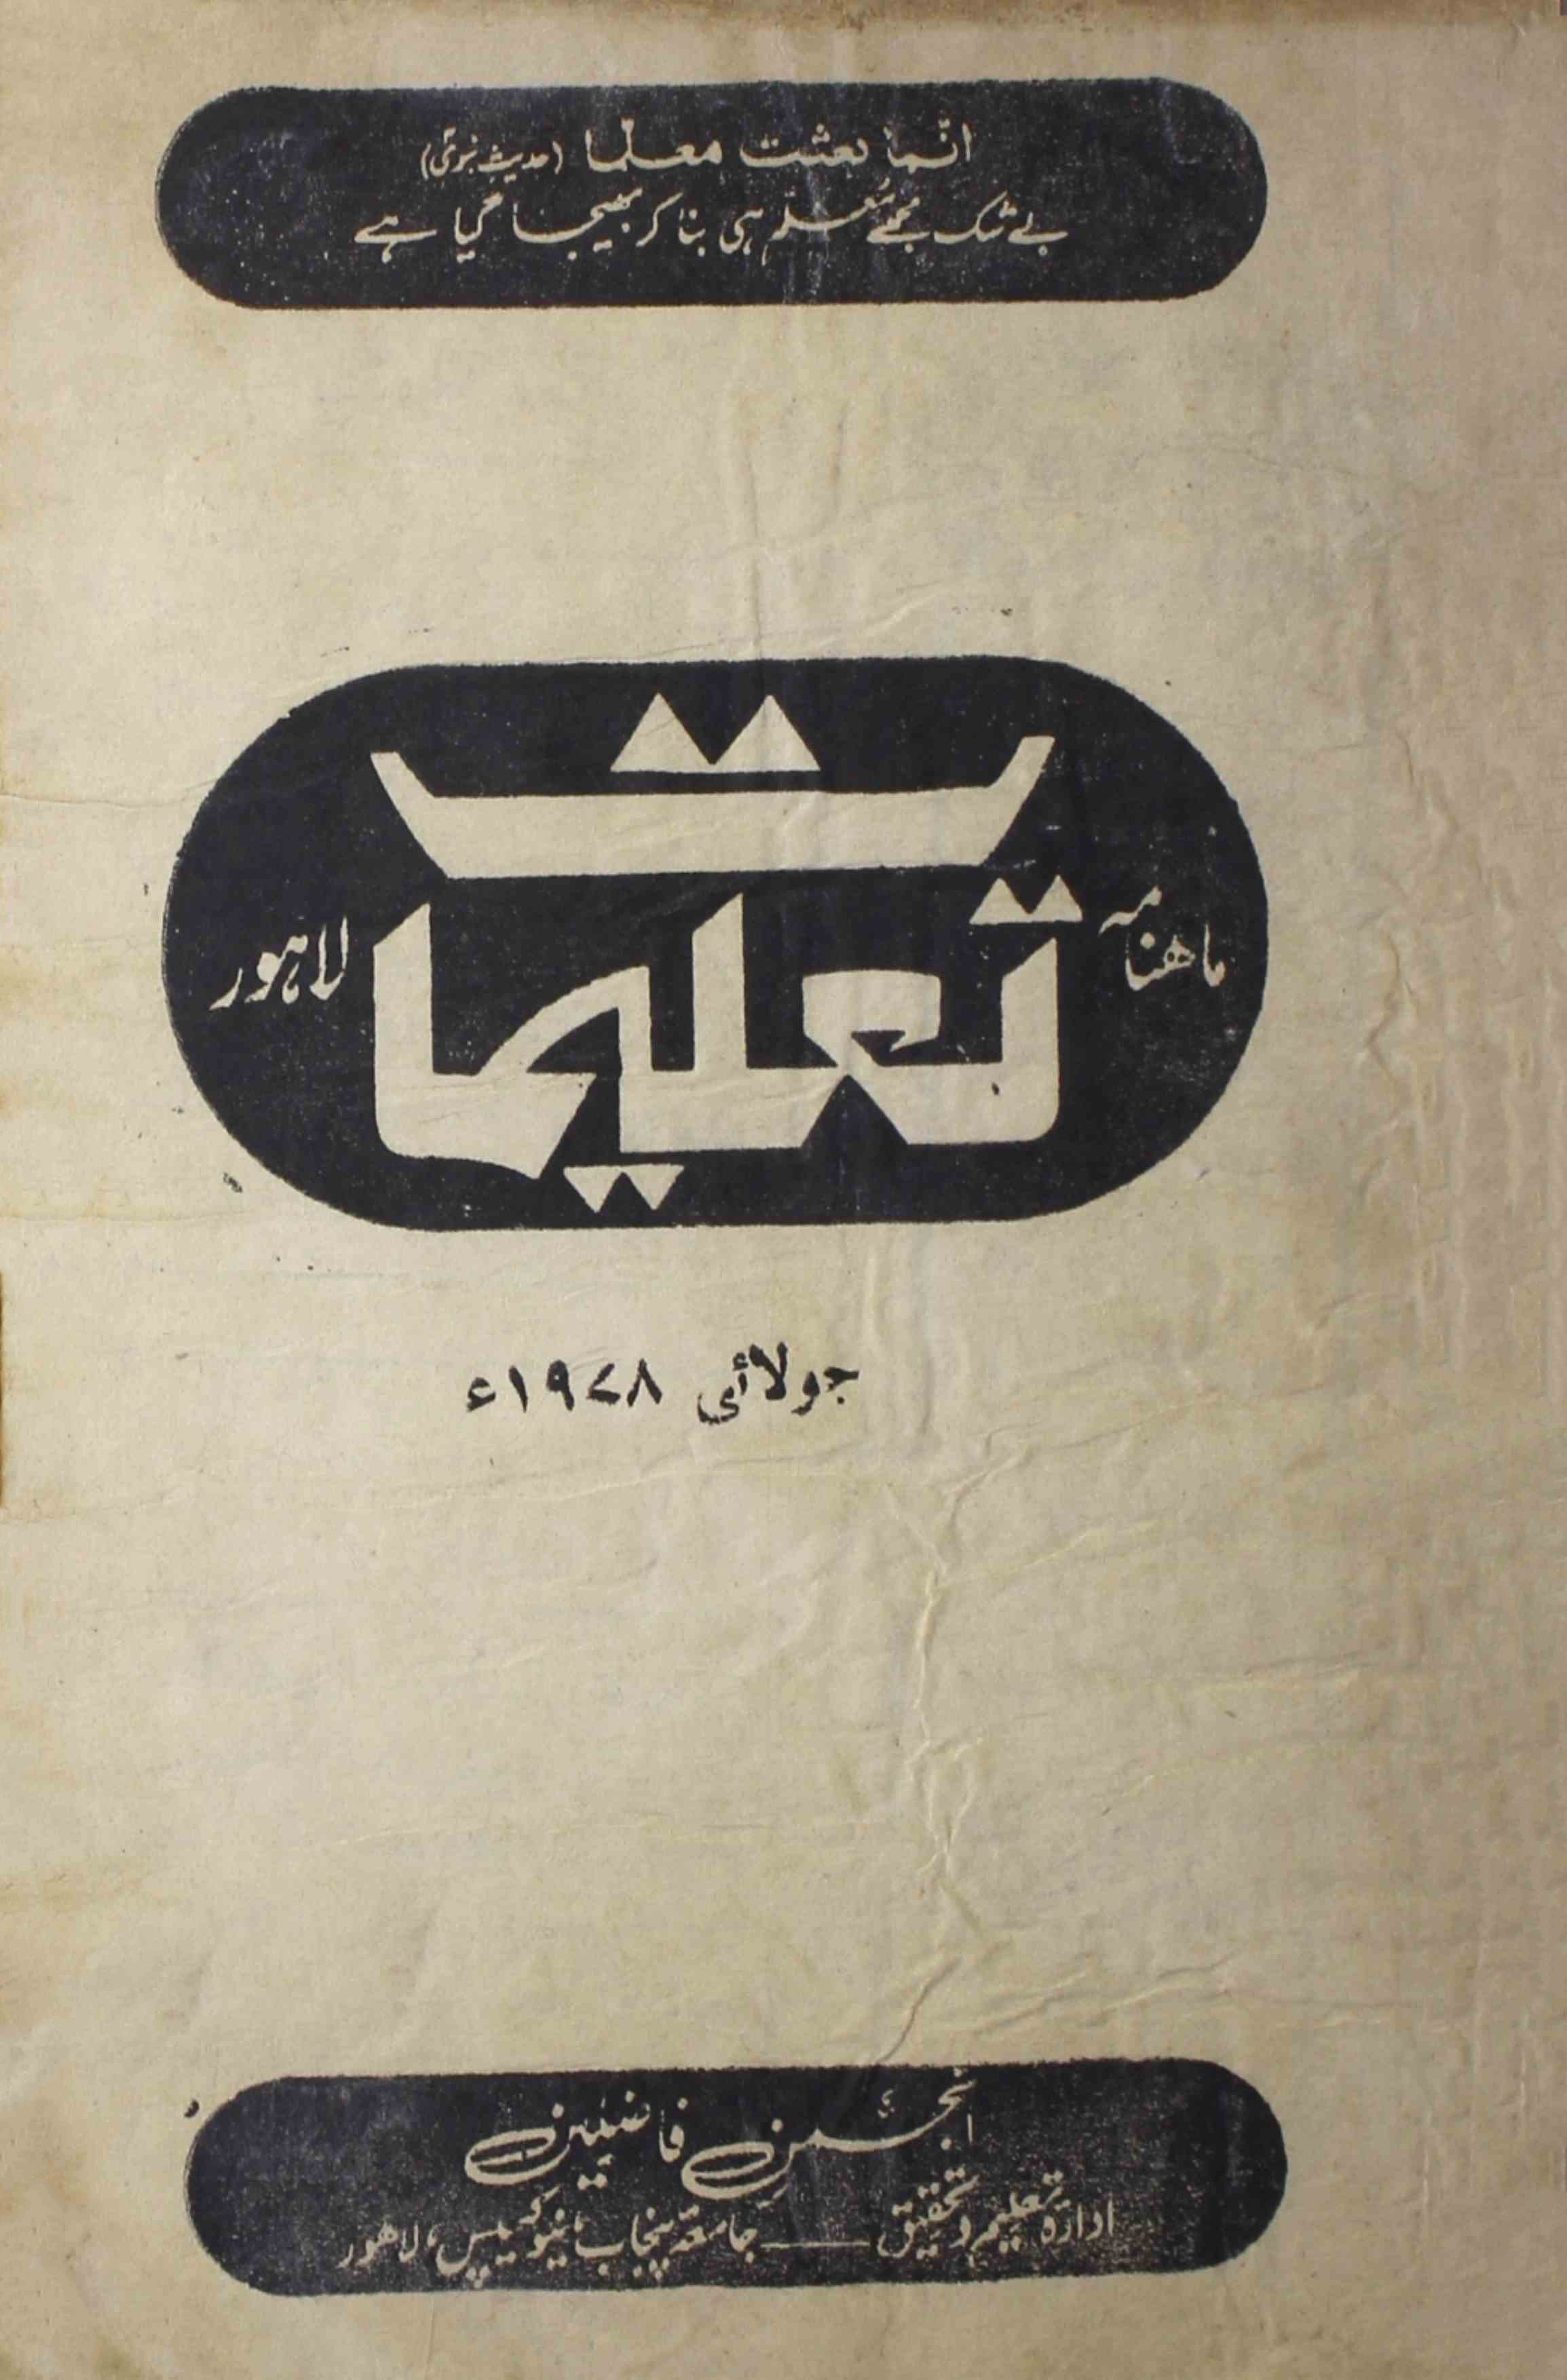 انّما بعثت معلّما (حدیث نبویؐ)
بے شک مجھے مُعلّم ہی بنا کر بھیجا گیا ہے
ماھنامہ تعلیمات لاہور
جولائی ۱۹۷۸ء
انجمن فاضلین
ادارۂ تعلیم و تحقیق ــــ جامعۂ پنجاب، نیو کیمپس، لاھور